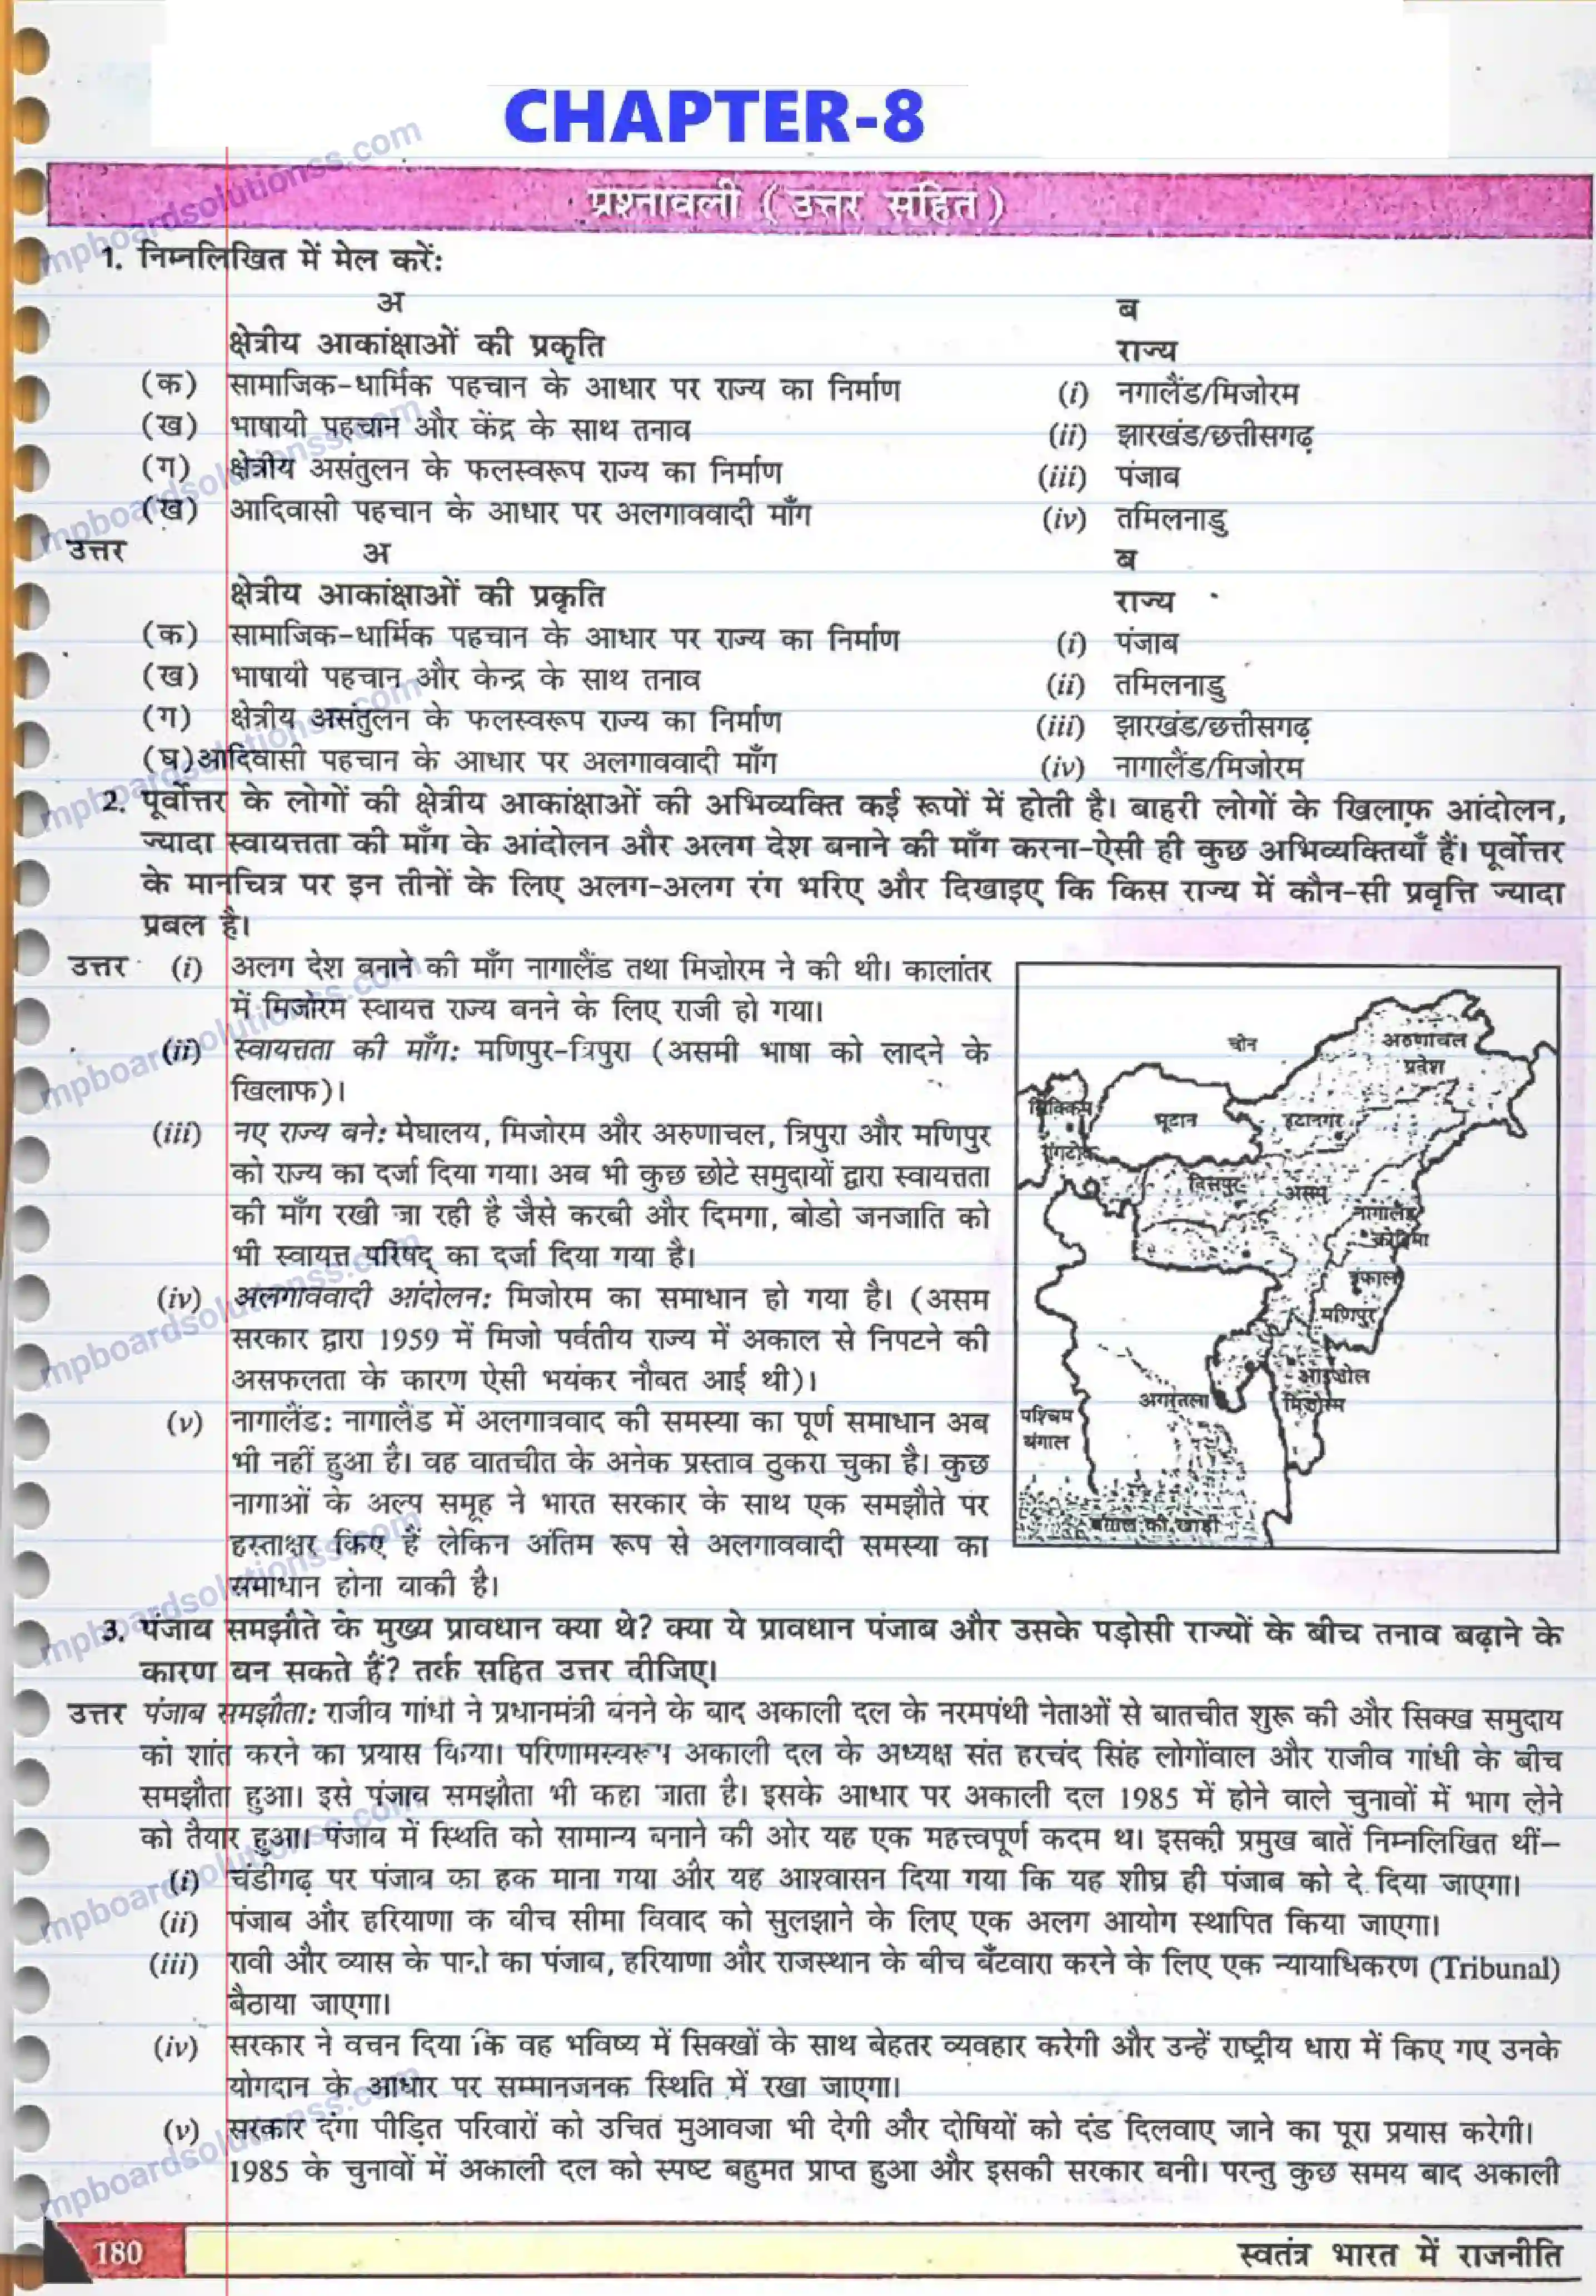 CHAPTER-8
प्रश्नावली ( उत्तर सहित )
1. निम्नलिखित में मेल करें:
अ ब
क्षेत्रीय आकांक्षाओं की प्रकृति राज्य
(क) सामाजिक-धार्मिक पहचान के आधार पर राज्य का निर्माण (i) नगालैंड/मिजोरम
(ख) भाषायी पहचान और केंद्र के साथ तनाव (ii) झारखंड/छत्तीसगढ़
(ग) क्षेत्रीय असंतुलन के फलस्वरूप राज्य का निर्माण (iii) पंजाब
(ख) आदिवासी पहचान के आधार पर अलगाववादी माँग (iv) तमिलनाडु
उत्तर अ ब
क्षेत्रीय आकांक्षाओं की प्रकृति राज्य
(क) सामाजिक-धार्मिक पहचान के आधार पर राज्य का निर्माण (i) पंजाब
(ख) भाषायी पहचान और केन्द्र के साथ तनाव (ii) तमिलनाडु
(ग) क्षेत्रीय असंतुलन के फलस्वरूप राज्य का निर्माण (iii) झारखंड/छत्तीसगढ़
(घ) आदिवासी पहचान के आधार पर अलगाववादी माँग (iv) नागालैंड/मिजोरम
2. पूर्वोत्तर के लोगों की क्षेत्रीय आकांक्षाओं की अभिव्यक्ति कई रूपों में होती है। बाहरी लोगों के खिलाफ़ आंदोलन,
ज्यादा स्वायत्तता की माँग के आंदोलन और अलग देश बनाने की माँग करना-ऐसी ही कुछ अभिव्यक्तियाँ हैं। पूर्वोत्तर
के मानचित्र पर इन तीनों के लिए अलग-अलग रंग भरिए और दिखाइए कि किस राज्य में कौन-सी प्रवृत्ति ज्यादा
प्रबल है।
उत्तर (i) अलग देश बनाने की माँग नागालैंड तथा मिज़ोरम ने की थी। कालांतर
में मिजोरम स्वायत्त राज्य बनने के लिए राजी हो गया।
(ii) स्वायत्तता की माँग: मणिपुर-त्रिपुरा (असमी भाषा को लादने के
खिलाफ)।
(iii) नए राज्य बने: मेघालय, मिजोरम और अरुणाचल, त्रिपुरा और मणिपुर
को राज्य का दर्जा दिया गया। अब भी कुछ छोटे समुदायों द्वारा स्वायत्तता
की माँग रखी जा रही है जैसे करबी और दिमगा, बोडो जनजाति को
भी स्वायत्त परिषद् का दर्जा दिया गया है।
(iv) अलगाववादी आंदोलन: मिजोरम का समाधान हो गया है। (असम
सरकार द्वारा 1959 में मिजो पर्वतीय राज्य में अकाल से निपटने की
असफलता के कारण ऐसी भयंकर नौबत आई थी)।
(v) नागालैंड: नागालैंड में अलगाववाद की समस्या का पूर्ण समाधान अब
भी नहीं हुआ है। वह वातचीत के अनेक प्रस्ताव ठुकरा चुका है। कुछ
नागाओं के अल्प समूह ने भारत सरकार के साथ एक समझौते पर
हस्ताक्षर किए हैं लेकिन अंतिम रूप से अलगाववादी समस्या का
समाधान होना बाकी है।
चीन
अरुणाचल
प्रदेश
सिक्किम
भूटान
इटानगर
गंगटोक
दिसपुर
असम
नागालैंड
कोहिमा
इंफाल
मणिपुर
आइजोल
अगरतला
मिजोरम
पश्चिम
बंगाल
बंगाल की खाड़ी
3. पंजाब समझौते के मुख्य प्रावधान क्या थे? क्या ये प्रावधान पंजाब और उसके पड़ोसी राज्यों के बीच तनाव बढ़ाने के
कारण बन सकते हैं? तर्क सहित उत्तर दीजिए।
उत्तर पंजाब समझौता: राजीव गांधी ने प्रधानमंत्री बनने के बाद अकाली दल के नरमपंथी नेताओं से बातचीत शुरू की और सिक्ख समुदाय
को शांत करने का प्रयास किया। परिणामस्वरूप अकाली दल के अध्यक्ष संत हरचंद सिंह लोगोंवाल और राजीव गांधी के बीच
समझौता हुआ। इसे पंजाब समझौता भी कहा जाता है। इसके आधार पर अकाली दल 1985 में होने वाले चुनावों में भाग लेने
को तैयार हुआ। पंजाब में स्थिति को सामान्य बनाने की ओर यह एक महत्त्वपूर्ण कदम था। इसकी प्रमुख बातें निम्नलिखित थीं–
(i) चंडीगढ़ पर पंजाब का हक माना गया और यह आश्वासन दिया गया कि यह शीघ्र ही पंजाब को दे दिया जाएगा।
(ii) पंजाब और हरियाणा के बीच सीमा विवाद को सुलझाने के लिए एक अलग आयोग स्थापित किया जाएगा।
(iii) रावी और व्यास के पानी का पंजाब, हरियाणा और राजस्थान के बीच बँटवारा करने के लिए एक न्यायाधिकरण (Tribunal)
बैठाया जाएगा।
(iv) सरकार ने वचन दिया कि वह भविष्य में सिक्खों के साथ बेहतर व्यवहार करेगी और उन्हें राष्ट्रीय धारा में किए गए उनके
योगदान के आधार पर सम्मानजनक स्थिति में रखा जाएगा।
(v) सरकार दंगा पीड़ित परिवारों को उचित मुआवजा भी देगी और दोषियों को दंड दिलवाए जाने का पूरा प्रयास करेगी।
1985 के चुनावों में अकाली दल को स्पष्ट बहुमत प्राप्त हुआ और इसकी सरकार बनी। परन्तु कुछ समय बाद अकाली
180 स्वतंत्र भारत में राजनीति
mpboardsolutionss.com
mpboardsolutionss.com
mpboardsolutionss.com
mpboardsolutionss.com
mpboardsolutionss.com
mpboardsolutionss.com
mpboardsolutionss.com
mpboardsolutionss.com